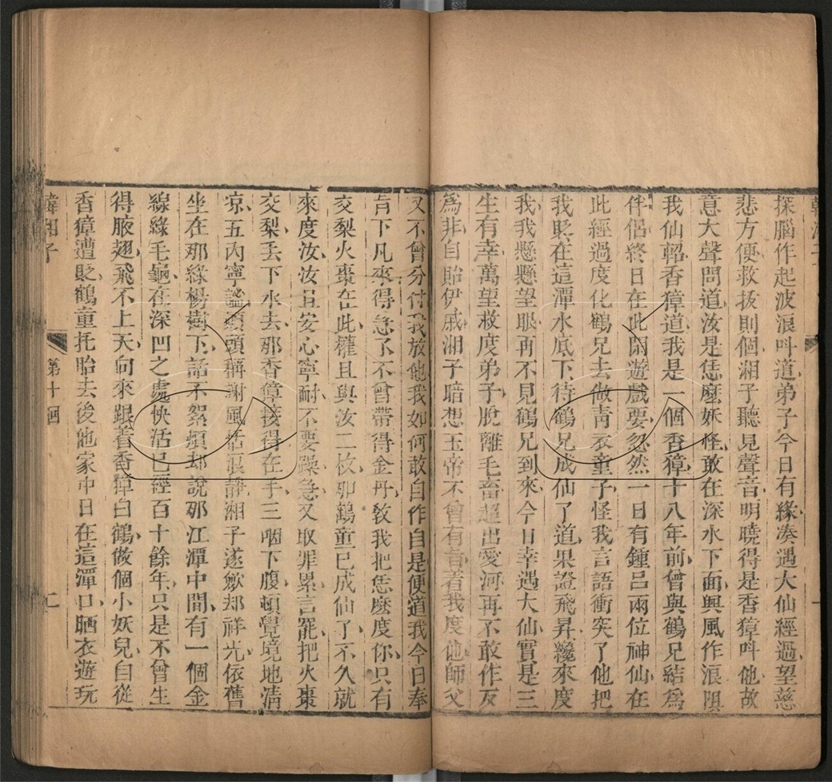 探腦作起波浪呌道弟子今日有緣湊遇大仙經過望慈
悲方便救拔則個湘子聽見聲音明曉得是香獐呌他故
意大聲問道汝是恁麼妖怪敢在深水下面興風作浪阻
我仙軺香獐道我是一個香獐十八年前曾與鶴兄結爲
伴侶終日在此閑遊戲耍忽然一日有鍾呂兩位神仙在
此經過度化鶴兄去做青衣童子怪我言語衝突了他把
我貶在這潭水底下待鶴兄成仙了道果證飛昇纔來度
我我懸懸望眼再不見鶴兄到來今日幸遇大仙實是三
生有幸萬望救度弟子脫離毛畜超出愛河再不敢作反
爲非自貽伊戚湘子暗想玉帝不曾有旨着我度他師父
又不曾分付我放他我如何敢自作自是便道我今日奉
旨下凡來得急了不曾帶得金丹敎我把恁麼度你只有
交梨火棗在此權且與汝二枚那鶴童已成仙了不久就
來度汝汝且安心寧耐不要躁急又取罪累言罷把火棗
交梨丟下水去那香獐接得在手三咽下腹頓覺境地淸
凉五內寧謐頭稱謝風恬浪靜湘子遂歛却祥光依舊
坐在那綠楊樹下話不絮煩却說那江潭中間有一個金
線綠毛龜在深凹之處快活已經百十餘年只是不曾生
得腋翅飛不上天向來跟着香獐白鶴做個小妖兒自從
香獐遭貶鶴童托胎去後他家中日在這潭口晒衣遊玩
韓湘子
第十回
二